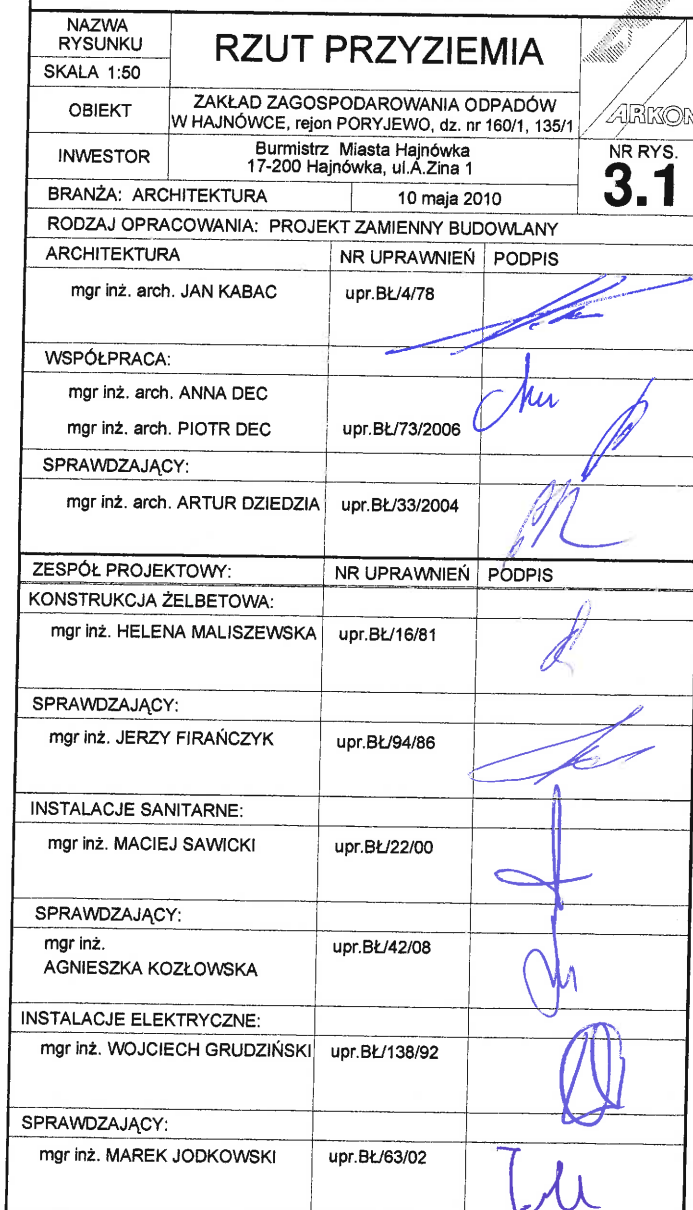 NAZWA
RYSUNKU
RZUT PRZYZIEMIA
SKALA 1:50
ARKON
OBIEKT
ZAKŁAD ZAGOSPODAROWANIA ODPADÓW
W HAJNÓWCE, rejon PORYJEWO, dz. nr 160/1, 135/1
INWESTOR
Burmistrz Miasta Hajnówka
17-200 Hajnówka, ul.A.Zina 1
NR RYS.
3.1
BRANŻA: ARCHITEKTURA
10 maja 2010
RODZAJ OPRACOWANIA: PROJEKT ZAMIENNY BUDOWLANY
ARCHITEKTURA NR UPRAWNIEŃ PODPIS
mgr inż. arch. JAN KABAC upr.BŁ/4/78
WSPÓŁPRACA:
mgr inż. arch. ANNA DEC
mgr inż. arch. PIOTR DEC upr.BŁ/73/2006
SPRAWDZAJĄCY:
mgr inż. arch. ARTUR DZIEDZIA upr.BŁ/33/2004
ZESPÓŁ PROJEKTOWY: NR UPRAWNIEŃ PODPIS
KONSTRUKCJA ŻELBETOWA:
mgr inż. HELENA MALISZEWSKA upr.BŁ/16/81
SPRAWDZAJĄCY:
mgr inż. JERZY FIRAŃCZYK upr.BŁ/94/86
INSTALACJE SANITARNE:
mgr inż. MACIEJ SAWICKI upr.BŁ/22/00
SPRAWDZAJĄCY:
mgr inż. upr.BŁ/42/08
AGNIESZKA KOZŁOWSKA
INSTALACJE ELEKTRYCZNE:
mgr inż. WOJCIECH GRUDZIŃSKI upr.BŁ/138/92
SPRAWDZAJĄCY:
mgr inż. MAREK JODKOWSKI upr.BŁ/63/02